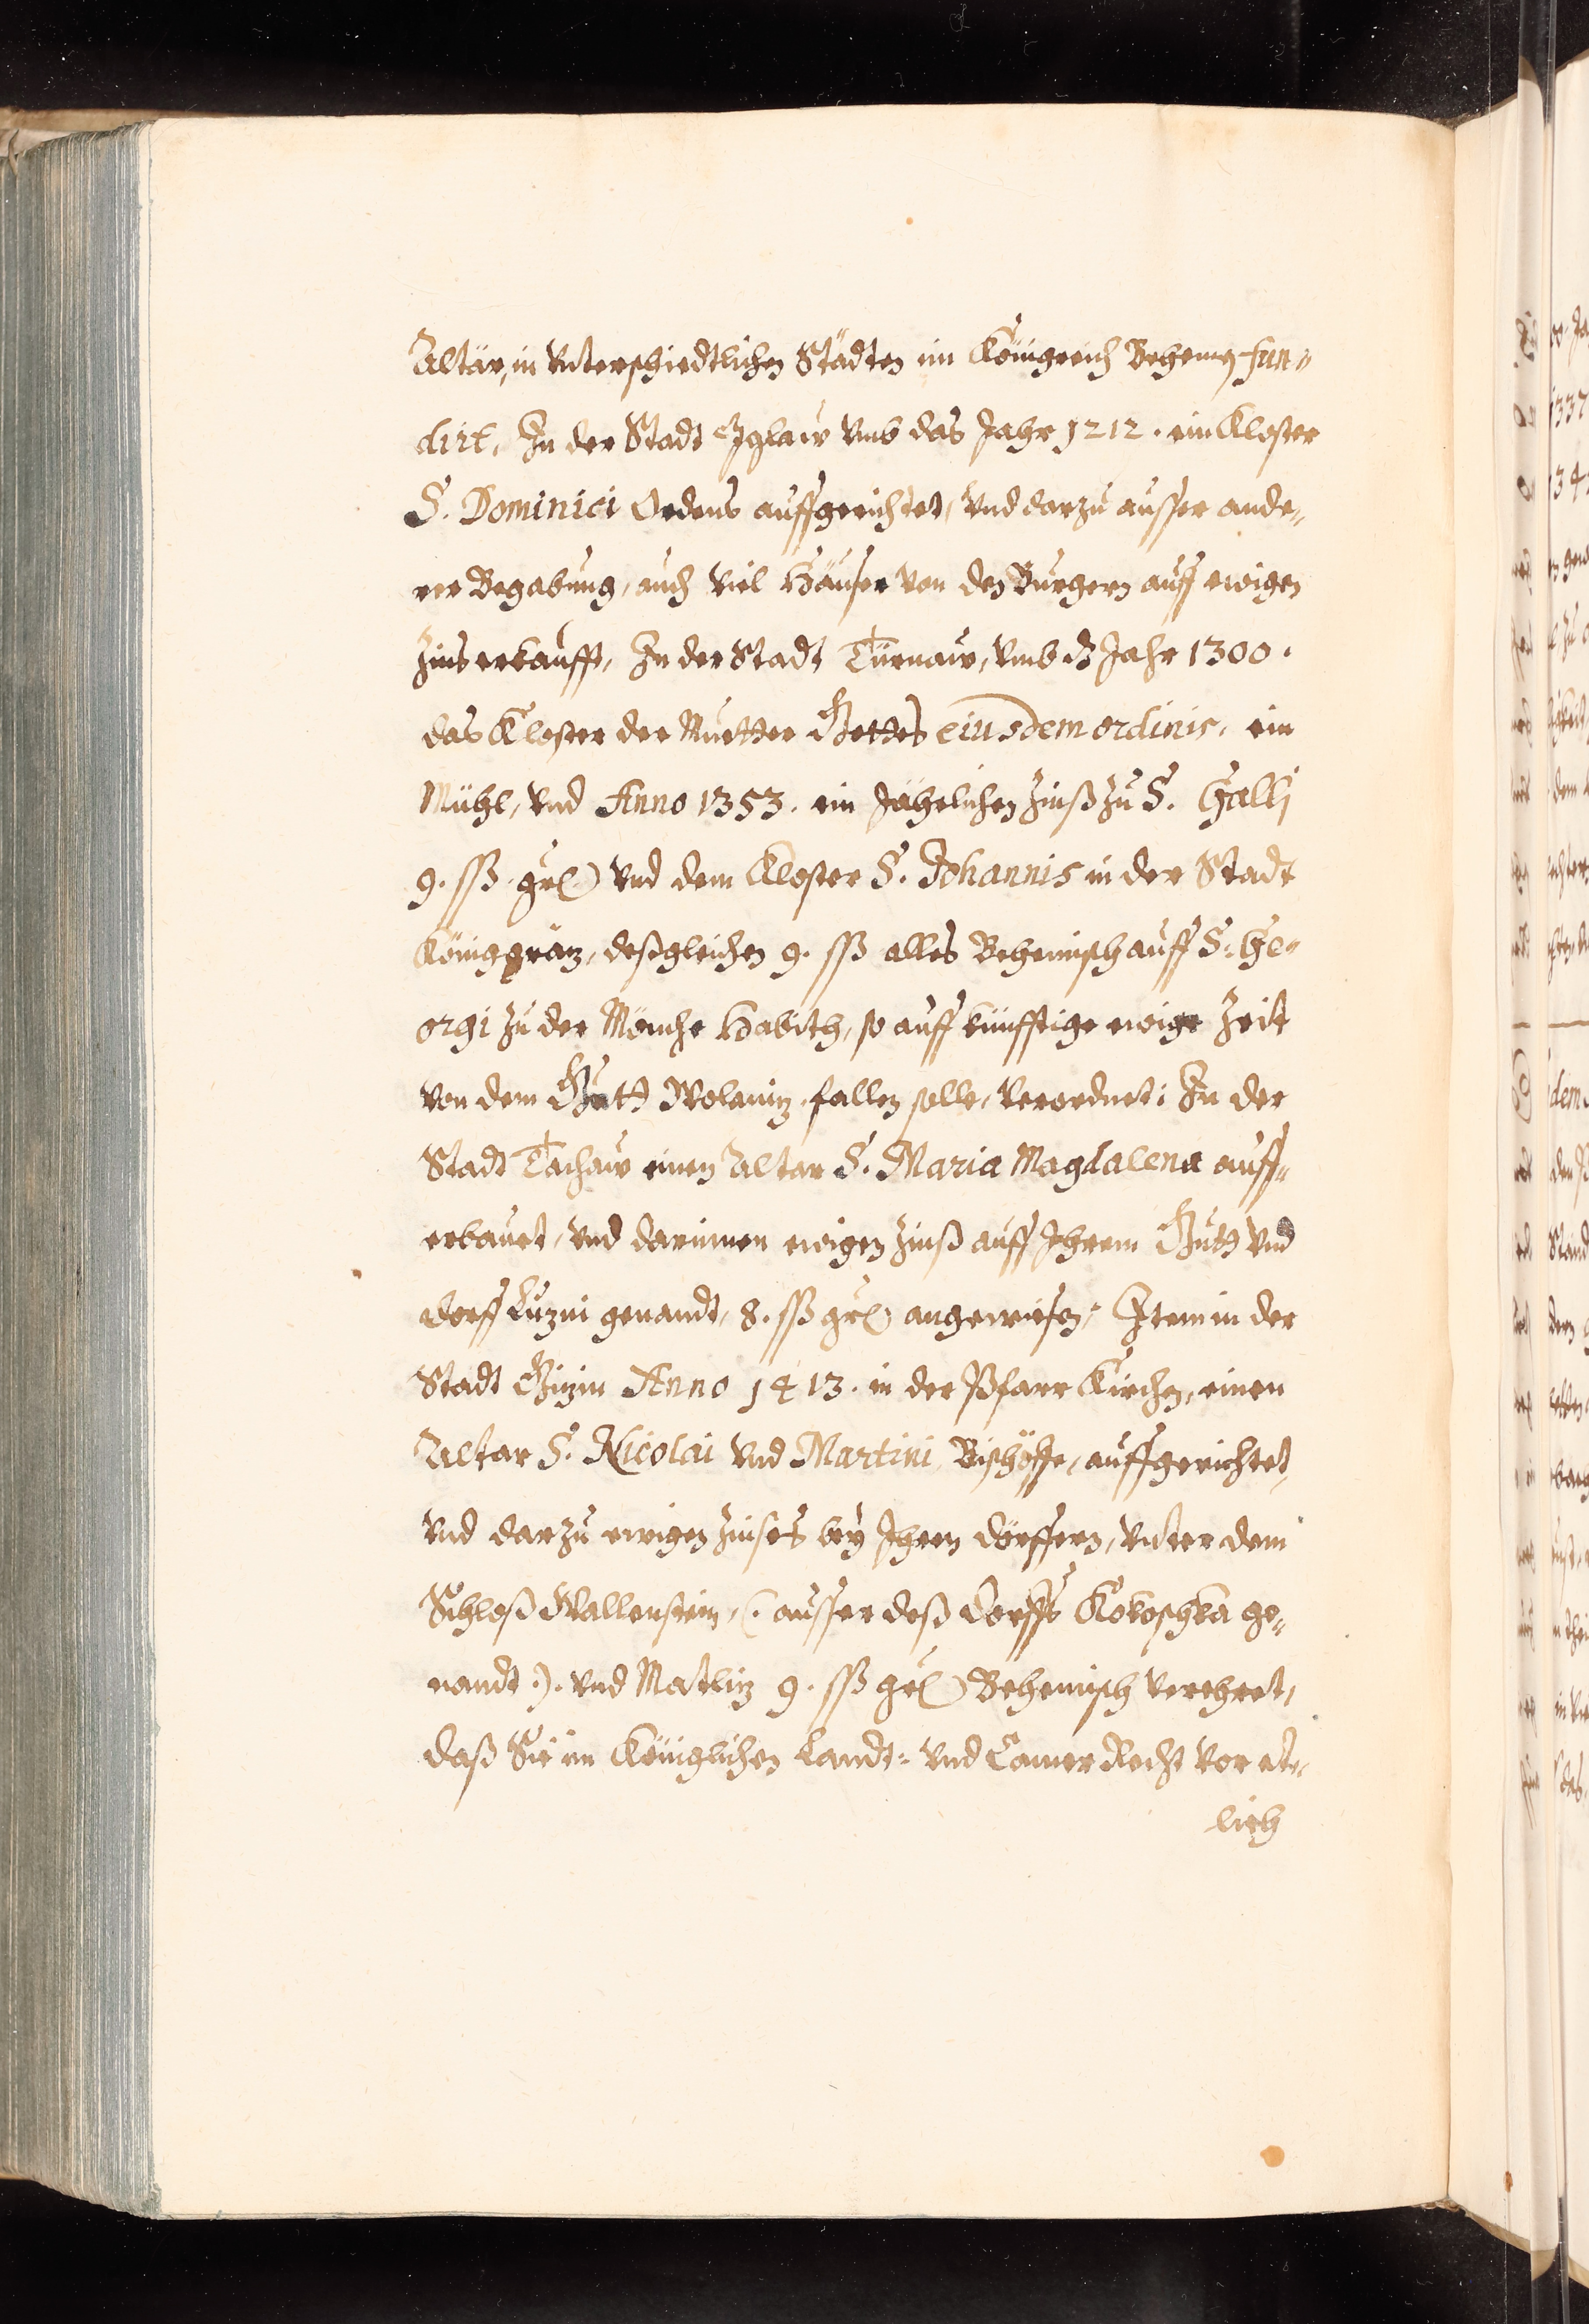 Altär, in Vnterschiedtlichen Städten im Königreich Behemb fun„
dirt, In der Stadt Iglaw vmb das Jahr 1212. ein Kloster
S. Dominici Ordens auffgerichtet, vnd darzu ausser ande„
rer Begabung, auch viel Häuser von den Burgern auff ewigen
Zins erkaufft, In der Stadt Türnaw, vmb dz Jahr 1300.
das Kloster der Muetter Gottes eiusdem ordinis, ein
Mühl, vnd Anno 1353. ein Jährlichen Zinß zu S. Galli
9. ßß. gr. vnd dem Kloster S. Johannis in der Stadt
Königgräz, deßgleichen 9. ßß alles Behemisch auff S. Ge„
orgi zu der Mönche Habith, so auff künfftige ewige Zeit
von dem Gutt Wolaniz fallen solle, verordnet; In der
Stadt Tachaw einen Altar S. Maria Magdalena auff„
erbauet, vnd darinnen ewigen Zinß auff Ihrem Guth vnd
dorff Luzni genandt, 8. ßß gr. angewiesen; Item in der
Stadt Gizin Anno 1413. in der Pfarr Kirchen, einen
Altar S. Nicolai vnd Martini Bischöffe, auffgerichtet,
vnd darzu ewigen Zinses bey Ihren dörffern, vnter dem
Schloß Wallenstein, (. ausser deß dorffs Kokoschka ge„
nandt .). vnd Matliz 9. ßß gr. Behemisch verehret,
daß Sie im Königlichen Landt= vnd Camer Recht vor ete„
lich